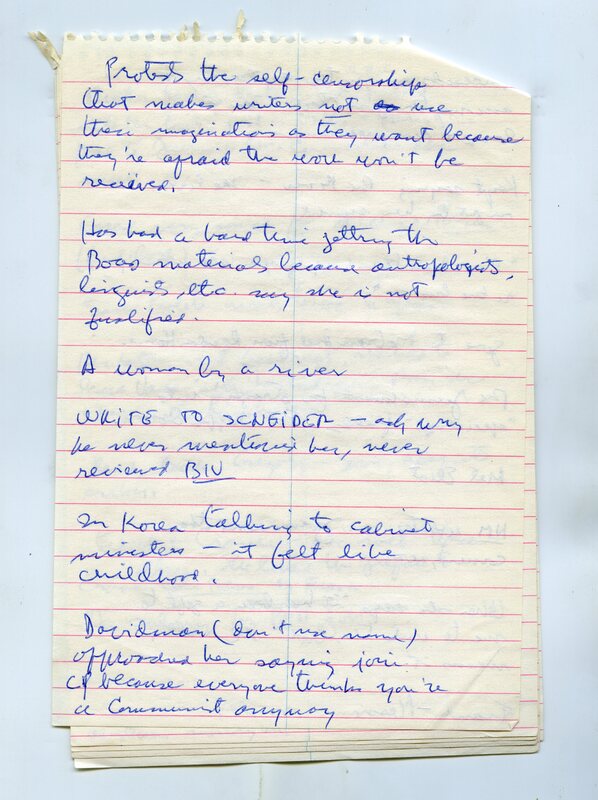 Protests the self-censorship
that makes writers not use
their imaginations as they want because
they're afraid the work won't be
received.
Has had a hard time getting the
Boas materials because antropologists,
linguists, etc. say she is not
qualified.
A woman by a river
WRITE TO SCNEIDER – ask why
he never mentioned her, never
reviewed BIV
In Korea talking to cabinet
ministers – it felt like
childhood.
Davidman (don't use name)
approached her saying join
CP because everyone thinks you're
a Communist anyway